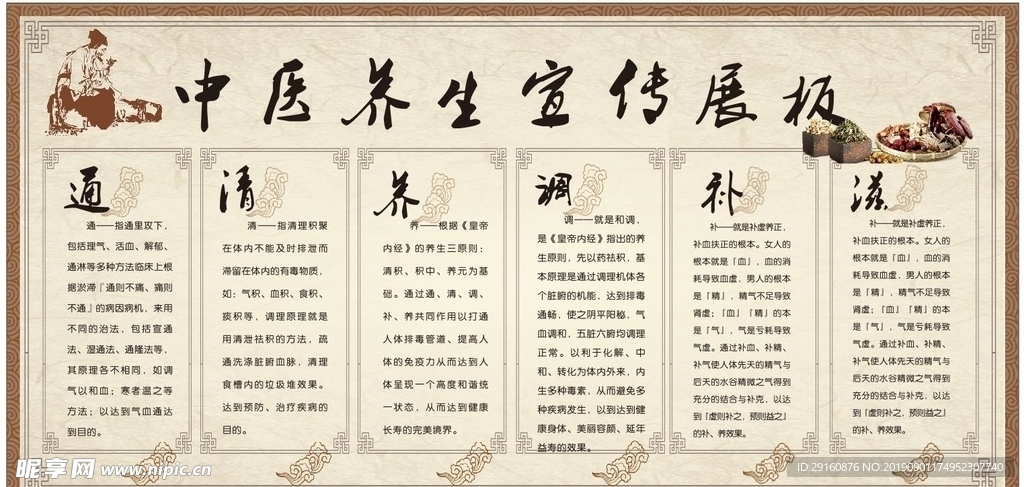 中医养生宣传展板
通
通——指通里攻下，
包括理气、活血、解郁、
通淋等多种方法临床上根
据淤滞『通则不痛、痛则
不通』的病因病机，来用
不同的治法，包括宣通
法、湿通法、通隆法等，
其原理各不相同，如调
气以和血；寒者温之等
方法；以达到气血通达
到目的。
清
清——指清理积聚
在体内不能及时排泄而
滞留在体内的有毒物质，
如：气积、血积、食积、
痰积等，调理原理就是
用清泄祛积的方法，疏
通洗涤脏腑血脉，清理
食槽内的垃圾堆效果。
达到预防、治疗疾病的
目的。
养
养——根据《皇帝
内经》的养生三原则：
清积、积中、养元为基
础。通过通、清、调、
补、养共同作用以打通
人体排毒管道、提高人
体的免疫力从而达到人
体呈现一个高度和谐统
一状态，从而达到健康
长寿的完美境界。
调
调——就是和调，
是《皇帝内经》指出的养
生原则，先以药祛积，基
本原理是通过调理机体各
个脏腑的机能，达到排毒
通畅，使之阴平阳秘，气
血调和，五脏六腑均调理
正常。以利于化解、中
和、转化为体内外来，内
生多种毒素，从而避免多
种疾病发生，以到达到健
康身体、美丽容颜、延年
益寿的效果。
补
补——就是补虚养正，
补血扶正的根本。女人的
根本就是「血」，血的消
耗导致血虚，男人的根本
是「精」，精气不足导致
肾虚；「血」「精」的本
是「气」，气是亏耗导致
气虚。通过补血、补精、
补气使人体先天的精气与
后天的水谷精微之气得到
充分的结合与补克，以达
到『虚则补之，预则益之』
的补、养效果。
滋
补——就是补虚养正，
补血扶正的根本。女人的
根本就是「血」，血的消
耗导致血虚，男人的根本
是「精」，精气不足导致
肾虚；「血」「精」的本
是「气」，气是亏耗导致
气虚。通过补血、补精、
补气使人体先天的精气与
后天的水谷精微之气得到
充分的结合与补克，以达
到『虚则补之，预则益之』
的补、养效果。
昵享网 www.nipic.cn
ID:29160876 NO:20190901174952307740